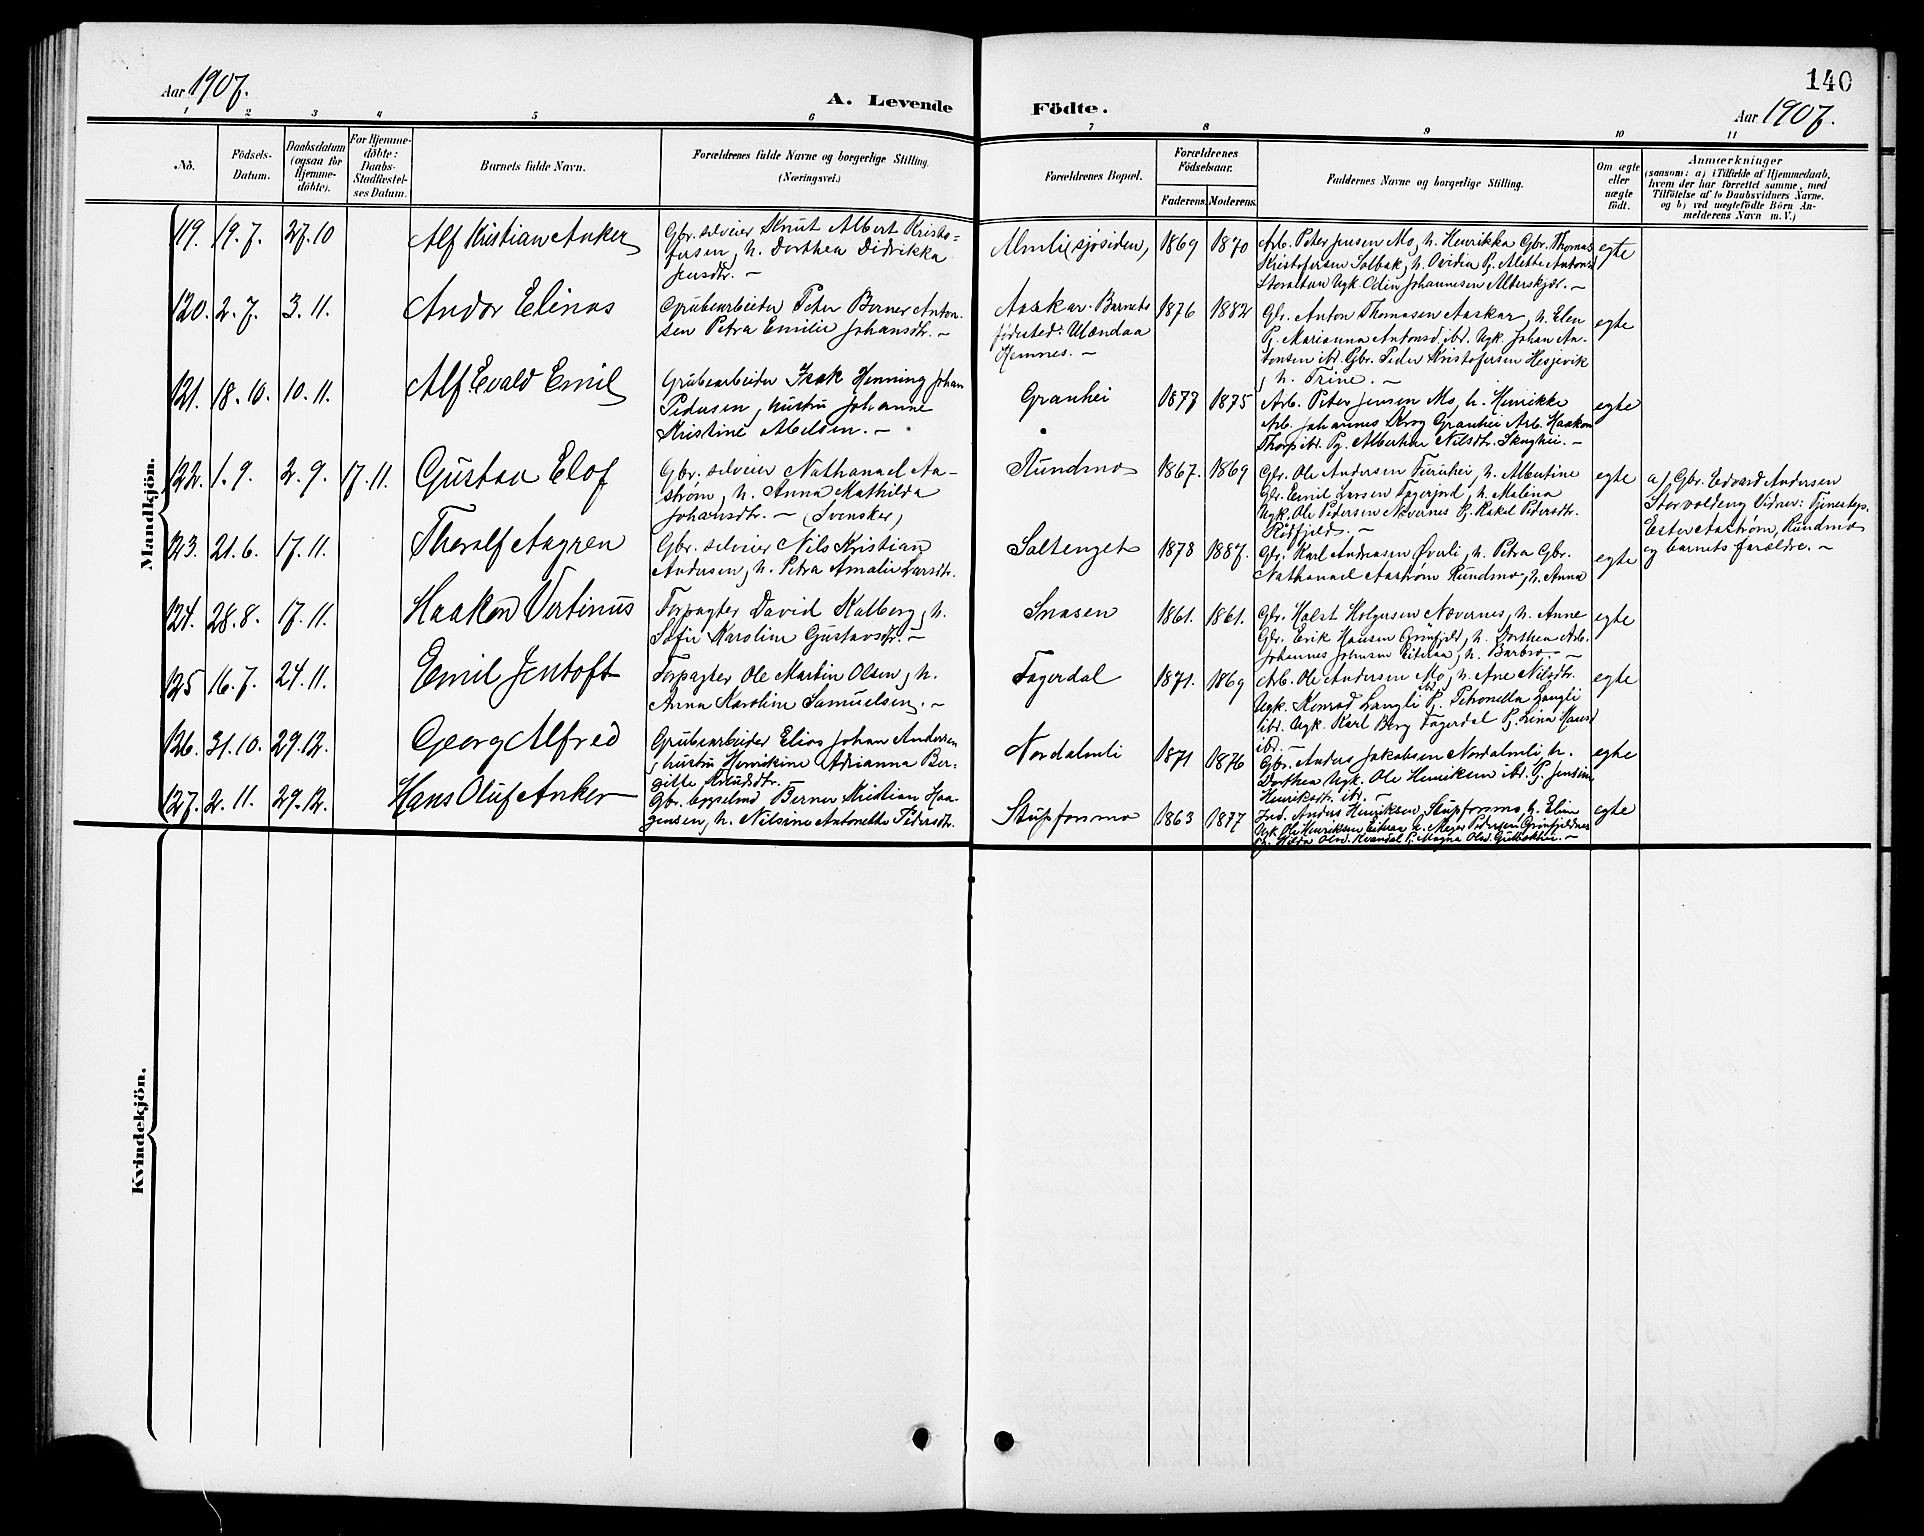 140
Aar 1907.
A. Levende
Födte.
Aar 1907.
1 2 3 4 5 6 7 8 9 10 11
No.
Födsels-
Datum.
Daabsdatum
(ogsaa for
Hjemme-
döbte).
For Hjemme-
döbte:
Daabs-
Stadfæstel-
ses Datum.
Barnets fulde Navn.
Forældrenes fulde Navne og borgerlige Stilling.
(Næringsvei.)
Forældrenes Bopæl.
Forældrenes
Födselsaar.
Faderens. Moderens.
Faddernes Navne og borgerlige Stilling.
Om ægte
eller
uægte
födt.
Anmærkninger
(saasom: a) i Tilfælde af Hjemmedaab,
hvem der har forrettet samme, med
Tilföielse af to Daabsvidners Navne,
og b) ved uægtefödte Börn An-
melderens Navn m. V.)
Mandkjön.
119. 19.7. 27.10 Alf Kristian Anker
Gbr. selveier Knut Albert Kristo-
fersen, h. Dorthea Didrikka
Jensdtr. –
Almli (sjøsiden) 1869 1870
Arb. Peter Jensen Mo, h. Henrikka Gbr. Thomas
Kristofersen Solbak, h. Ovidia Pg. Alette Antonsd
Storalteren Ugk. Odin Johannesen Alterskjær. –
egte
120. 2.7. 3.11. Andor Elinas
Grubearbeider Peter Berner Anton-
sen Petra Emilie Johansdtr. –
Aaskar. Barnets
fødested: Ulændaa
Hemnes. –
1876 1882
Gbr. Anton Thomasen Aaskar, h. Elen
Pg. Marianna Antonsd. ibd. Ugk. Johan An-
tonsen ibd. Gbr. Peder Kristofersen Hesjevik
, h. Trine. –
egte
121. 18.10. 10.11. Alf Evald Emil
Grubearbeider Isak Henning Johan
Pedersen, hustru Johanne
Kristine Abelsen. –
Granhei 1877 1875
Arb. Peter Jensen Mo, h. Henrikke
Arb. Johannes Krog Granhei Arb. Haakon
Thorp ibd. Pg. Albertine Nilsdtr. Skoghei. –
egte
122. 1.9. 2.9. 17.11. Gustav Elof
Gbr. selveier Nathanael Aa-
strøm, h. Anna Mathilda
Johansdtr. – (Svensker)
Rundmo 1867. 1869
Gbr. Ole Andersen Furuhei, h. Albertine
Gbr. Emil Larsen Fagerjord, h. Malena
Ugk. Ole Pedersen Nævernes Pg. Rakel Pedersdtr.
Rödfjeld. –
egte
a) Gbr. Edvard Andersen
Storvoldeng Vidner: Tjenestepg.
Ester Aastrøm, Rundmo
og barnets forældre. –
123. 21.6. 17.11. Thoralf Aagren
Gbr. selveier Nils Kristian
Andersen, h. Petra Amalie Larsdtr.
Saltenget 1878 1887.
Gbr. Karl Andreasen Øverli, h. Petra Gbr.
Nathanael Aastrøm Rundmo, h. Anna
egte
124. 28.8. 17.11. Haakon Vertinus
Forpagter David Kalberg, h.
Sofie Karoline Gustavsdtr. –
Snasen 1861. 1861.
Gbr. Holst Holgersen Nævernes, h. Anne
Gbr. Erik Hansen Grönfjeld, h. Dorthea Arb.
Johannes Johnsen Eiteraa, h. Barbro. –
egte
125 16.7. 24.11. Emil Jentoft
Forpagter Ole Martin Olsen, h.
Anna Karoline Samuelsen. –
Fagerdal 1871. 1869
Arb. Ole Andersen Mo, h. Ane Nilsdtr. ibd.
Ugk. Konrad Langli Pg. Petronella Langli
ibd. Ugk. Karl Berg Fagerdal Pg. Lina Hansd
ibd. –
egte
126. 31.10. 29.12. Georg Alfred
Grubearbeider Elias Johan Andersen
, hustru Henrikine Adrianna Ber-
gitte Knudsdtr.
Nordalmli 1871 1876
Gbr. Anders Jakobsen Nordalmli, h.
Dorthea Ugk. Ole Henriksen ibd. Pg. Jensine
Henriksdtr. ibd. –
egte
127. 2.11. 29.12. Hans Oluf Anker
Gbr. bygselmd Berner Kristian Haa-
gensen, h. Nilsine Antonette Pedersdtr.
Stupforsmo 1863 1877
Ind. Anders Henriksen Stupforsmo, h. Eline
Ugk. Ole Henriksen Eiteraa Meyer Pedersen Grönfjeldnes
Pg. Hilda Olsd. Kvandal Pg. Magna Olsd.
egte
Kvindekjön.